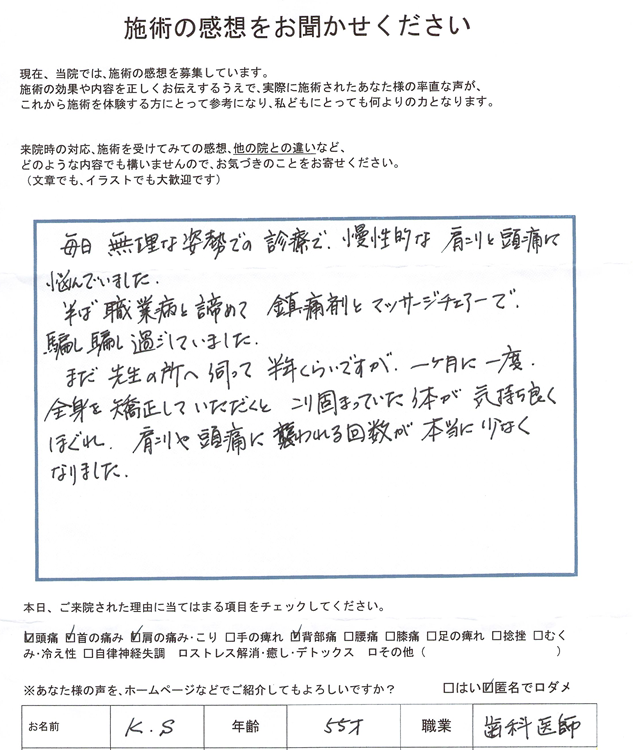 施術の感想をお聞かせください
現在、当院では、施術の感想を募集しています。
施術の効果や内容を正しくお伝えするうえで、実際に施術されたあなた様の率直な声が、
これから施術を体験する方にとって参考になり、私どもにとっても何よりの力となります。
来院時の対応、施術を受けてみての感想、他の院との違いなど、
どのような内容でも構いませんので、お気づきのことをお寄せください。
（文章でも、イラストでも大歓迎です）
毎日 無理な姿勢での 診療で、慢性的な 肩こりと頭痛に
悩んでいました.
半ば 職業病と諦めて 鎮痛剤と マッサージチェアーで、
騙し騙し過ごしていました.
まだ 先生の所へ伺って 半年くらいですが、一ケ月に一度、
全身を 矯正していただくと こり固まっていた 体が 気持ち良く
ほぐれ、肩こりや 頭痛に 襲われる回数が 本当に 少なく
なりました.
本日、ご来院された理由に当てはまる項目をチェックしてください。
☑頭痛 ☑首の痛み ☑肩の痛み・こり □手の痺れ ☑背部痛 □腰痛 □膝痛 □足の痺れ □捻挫 □むく
み・冷え性 □自律神経失調 □ストレス解消・癒し・デトックス □その他（ ）
※あなた様の声を、ホームページなどでご紹介してもよろしいですか？ □はい ☑匿名で ロダメ
お名前 K.S 年齢 55才 職業 歯科医師